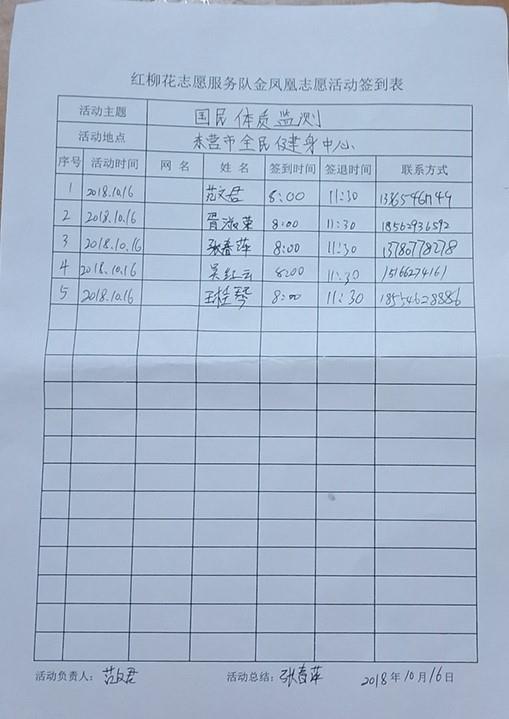 红柳花志愿服务队金凤凰志愿活动签到表
活动主题 国民体质监测
活动地点 东营市全民健身中心
序号 活动时间 网名 姓名 签到时间 签退时间 联系方式
1 2018.10.16 范文君 8:00 11:30
2 2018.10.16 胥淑荣 8:00 11:30 18562936592
3 2018.10.16 张春萍 8:00 11:30 13780778278
4 2018.10.16 吴红云 8:00 11:30 15166274161
5 2018.10.16 王桂琴 8:00 11:30 18554628886
活动负责人: 范文君 活动总结: 张春萍 2018年10月16日